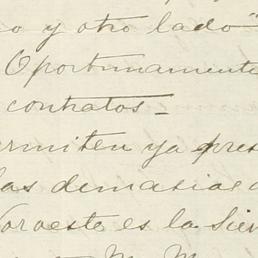 o y otro lado"
Oportunamente
contratos=
ermiten ya pres
las demasias
Noroeste es la Sier